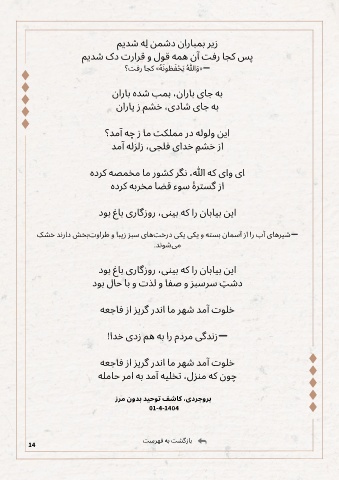 زیر بمباران دشمن لِه شدیم
پس کجا رفت آن همه قول و قرارت دک شدیم
—«وَاللَّهُ يَحْفَظُونَهُ» کجا رفت؟
به جای باران، بمب شده باران
به جای شادی، خشم ز یاران
این ولوله در مملکت ما ز چه آمد؟
از خشمِ خدای فلجی، زلزله آمد
ای وای که الله، نگر کشور ما مخمصه کرده
از گسترهٔ سوء قضا مخربه کرده
این بیابان را که بینی، روزگاری باغ بود
—شیرهای آب را از آسمان بسته و یکی یکی درخت‌های سبز زیبا و طراوت‌بخش دارند خشک
می‌شوند.
این بیابان را که بینی، روزگاری باغ بود
دشتِ سرسبز و صفا و لذت و با حال بود
خلوت آمد شهر ما اندر گریز از فاجعه
—زندگی مردم را به هم زدی خدا!
خلوت آمد شهر ما اندر گریز از فاجعه
چون که منزل، تخلیه آمد به امر حامله
بروجردی، کاشف توحید بدون مرز
01-4-1404
بازگشت به فهرست
14